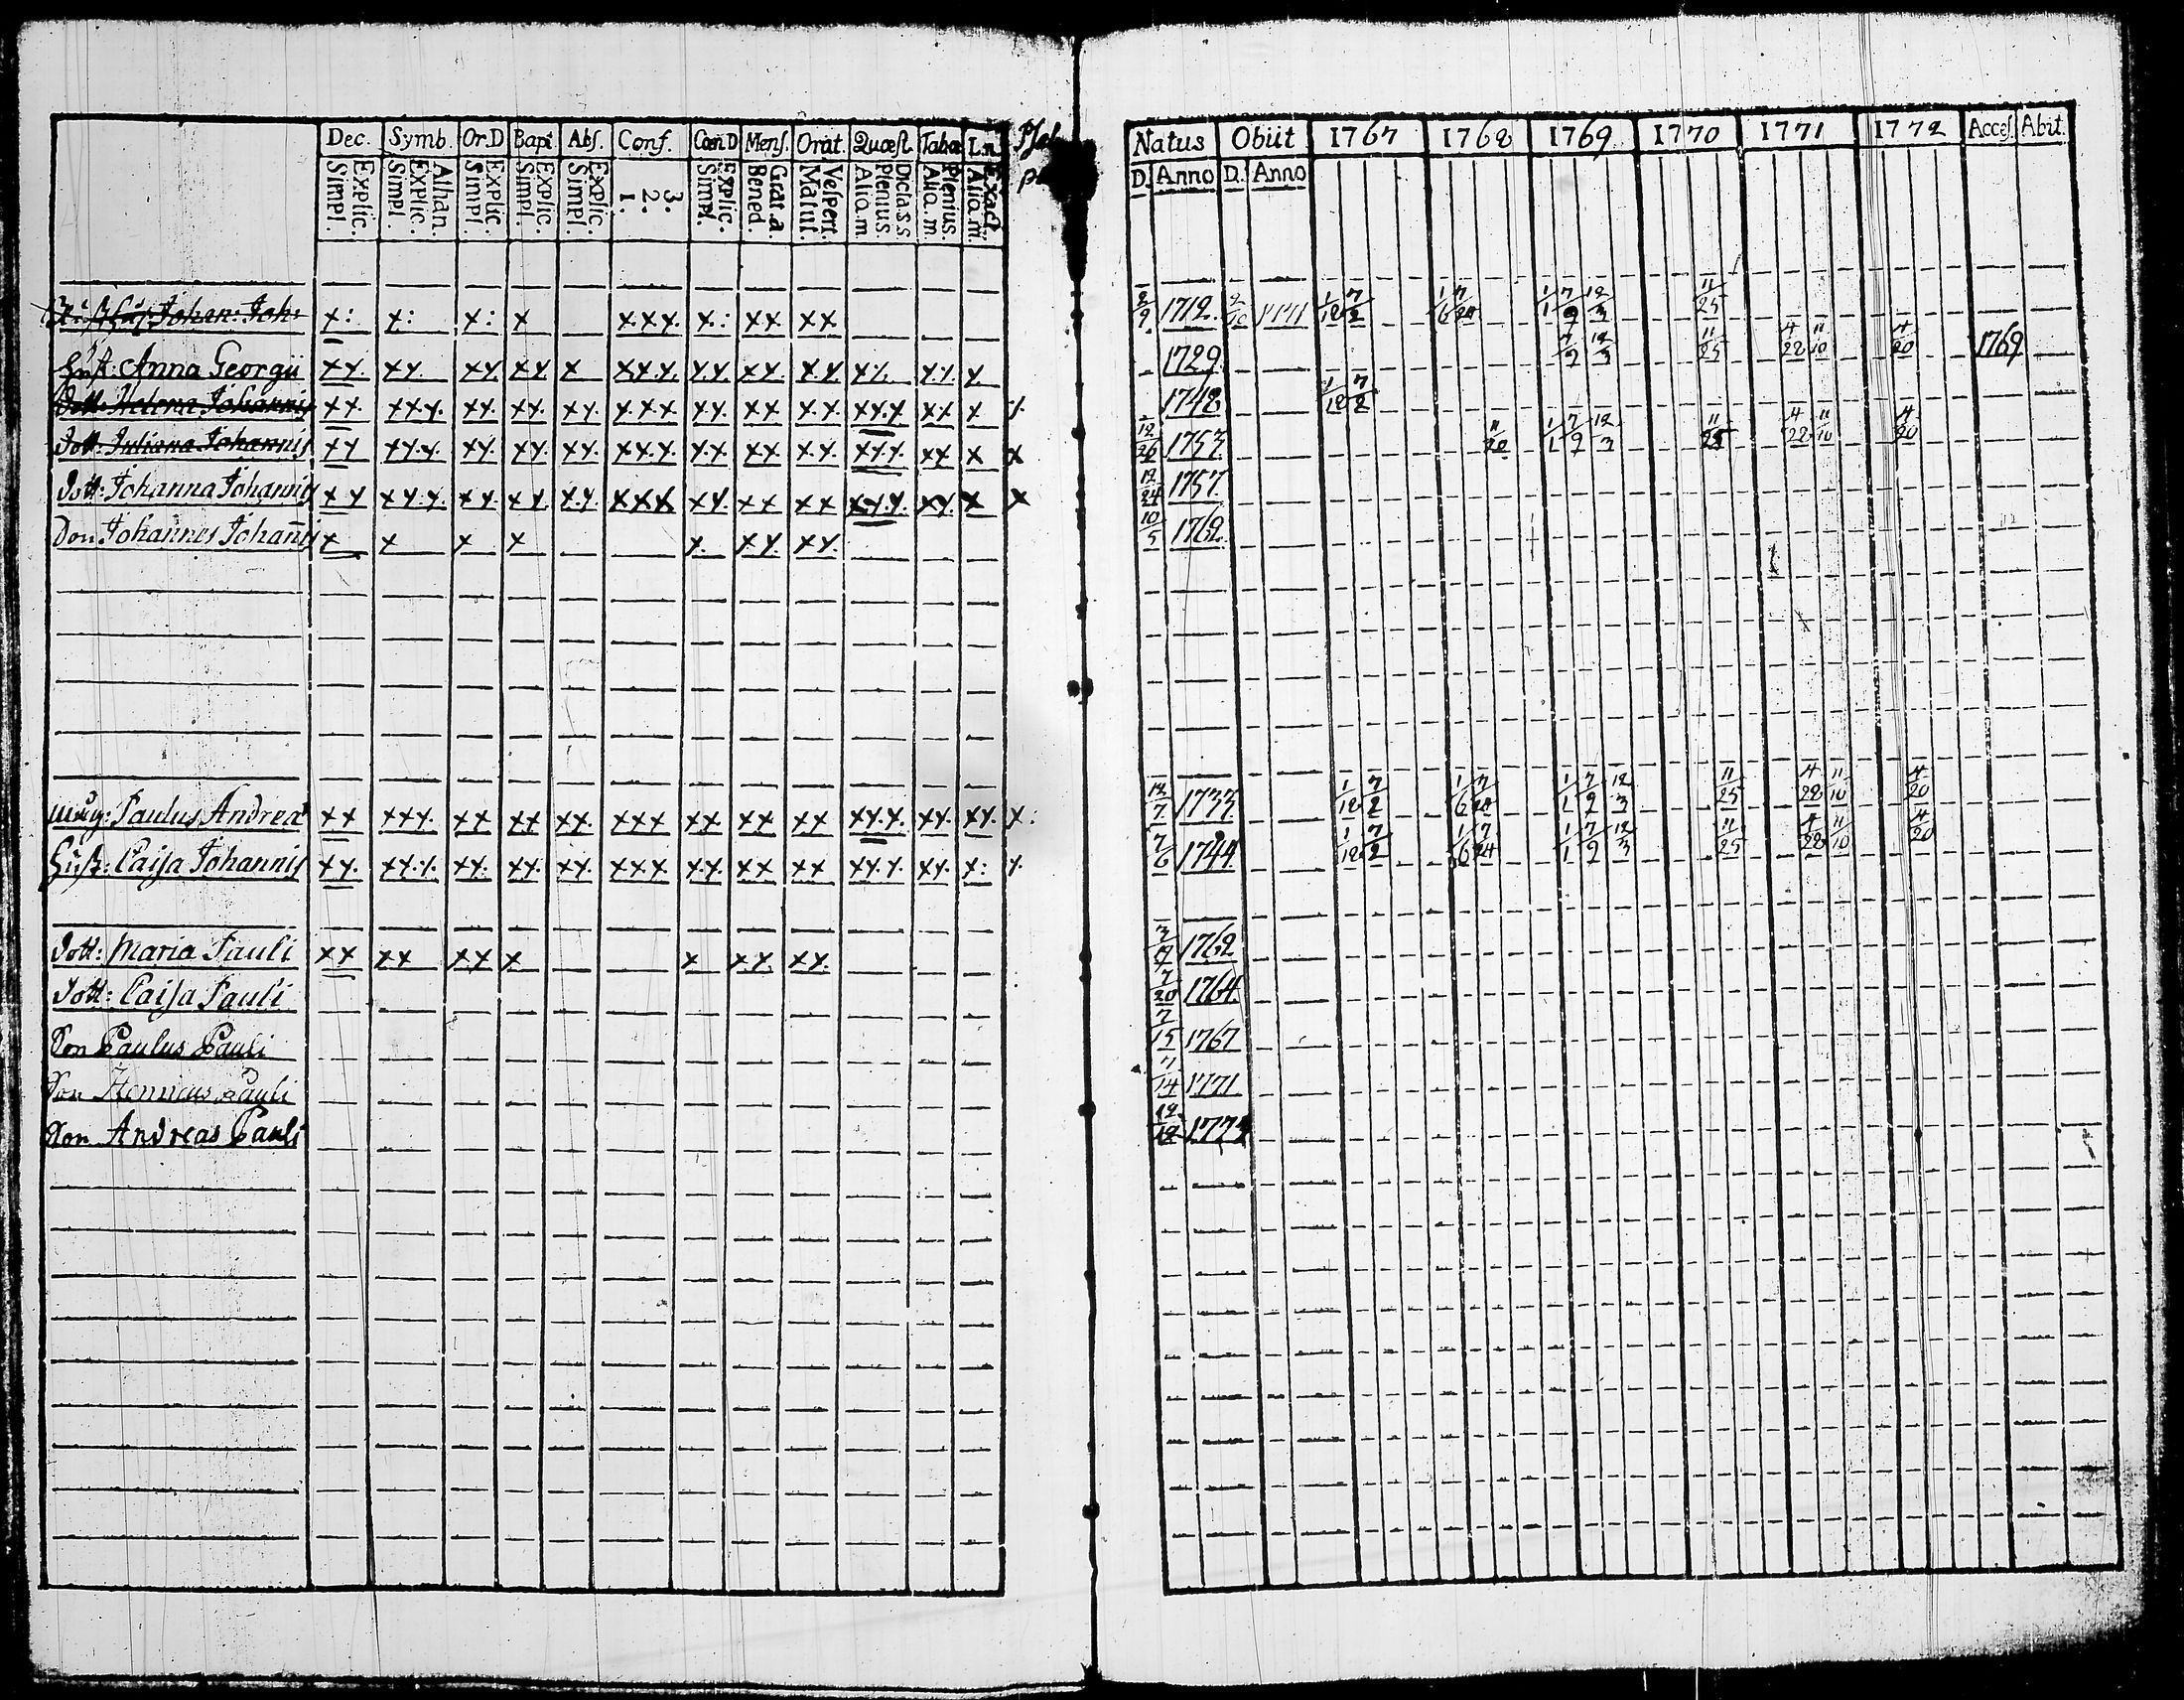 Dec. Symb. Or.D Bapt. Abs. Conf. Cœn D Mens. Orat. Quæst. Tabæ L.n.
Explic. Simpl. Athan. Explic. Simpl. Explic. Simpl. Explic. Simpl. Explic. Simpl. 3. 2. 1. Explic. Simpl. Grat. a. Bened. Vespert. Matut. Dicta s.s. Plenius. Aliq. m. Plenius. Aliq. m. Exact Aliq. m.
Natus Obiit 1767 1768 1769 1770 1771 1772 Acces. Abit.
D. Anno D. Anno
Johan: Joh: x: x: x: x xxx. x: xx xx 2/9 1712. 1/12 7/2 1/6 1/1 7/9 12/3 11/25
Hust: Anna Georgii xx. xx. xx xx x xx.x. x.x. xx. xx x.x. x.x. x 1729. 7/9 12/3 11/25 4/28 11/10 4/20 1769
Dott: Helena Johannis xx. xxx. xx. xx. xx. xxx xx. xx x.x. xx.x xx x x. 1748 1/12 7/2
Dott: Juliana Johannis xx xx.x. xx. xx. xx. xx.x. x.x xx xx. xx.x. xx x x 12/26 1753 11/20 1/1 7/9 12/3 11/25 4/28 11/10 4/20
Dott: Johanna Johannis xx xx.x xx. xx. x.x. xxx xx. xx xx xx.x xx. x x 12/24 1757.
Son Johannes Johannis x x x x x. xx. xx. 10/5 1762
Paulus Andreæ xx xxx. xx xx xx. xxx xx xx xx xx.x. xx. xx. x: 12/7 1733 1/12 7/2 1/6 7/24 1/1 7/9 12/3 11/25 4/28 11/10 4/20
Hust: Caisa Johannis xx. xx.x. xx. xx. xx xxx. x.x. xx xx xx.x. xx. x: x. 7/6 1744 1/12 7/2 1/6 7/24 1/1 7/9 12/3 11/25 4/28 11/10 4/20
Dott: Maria Pauli xx xx xx x x xx. xx. 1762
Dott: Caisa Pauli 7/20 1764
Son Paulus Pauli 7/15 1767
Son Henricus Pauli 7/14 1771
Son Andreas Pauli